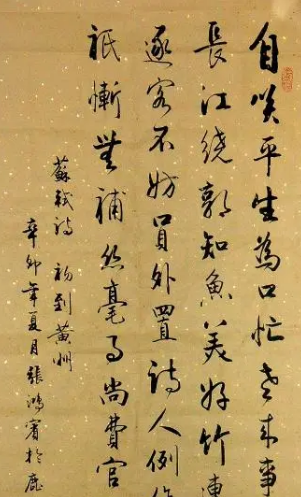 自咲平生為口忙老來事
長江繞郭知魚美好竹連
逐客不妨員外置詩人例作
祇慚無補絲毫事尚費官
蘇軾詩 初到黃州
辛卯年夏月張鴻賓於鹿